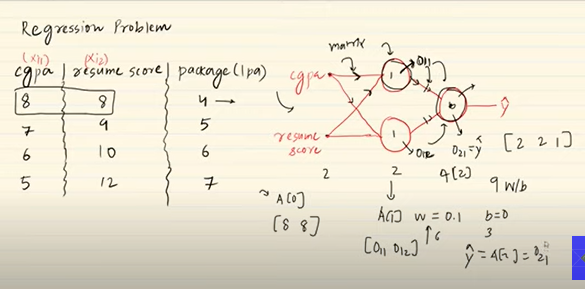 Regression Problem
(xi1) (xi2)
cgpa | resume score | package (lpa)
8 8 4 →
7 9 5
6 10 6
5 12 7
matrix
cgpa
resume score
1
1
O11
O12
O21 = ŷ
ŷ
[2 2 1]
2 2 4[2]
9 w/b
A[0]
[8 8]
A[1] w = 0.1 b=0
↑6 3
[O11 O12]
ŷ = A[2] = O21